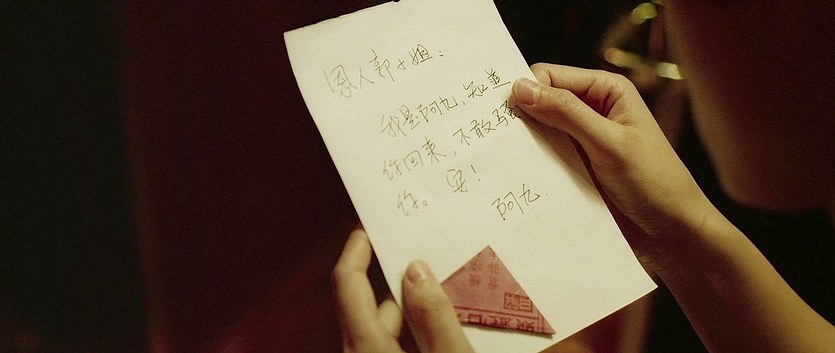 恩人郭小姐：
我是阿九，知道
你回来，不敢骚
你。安！
阿九.